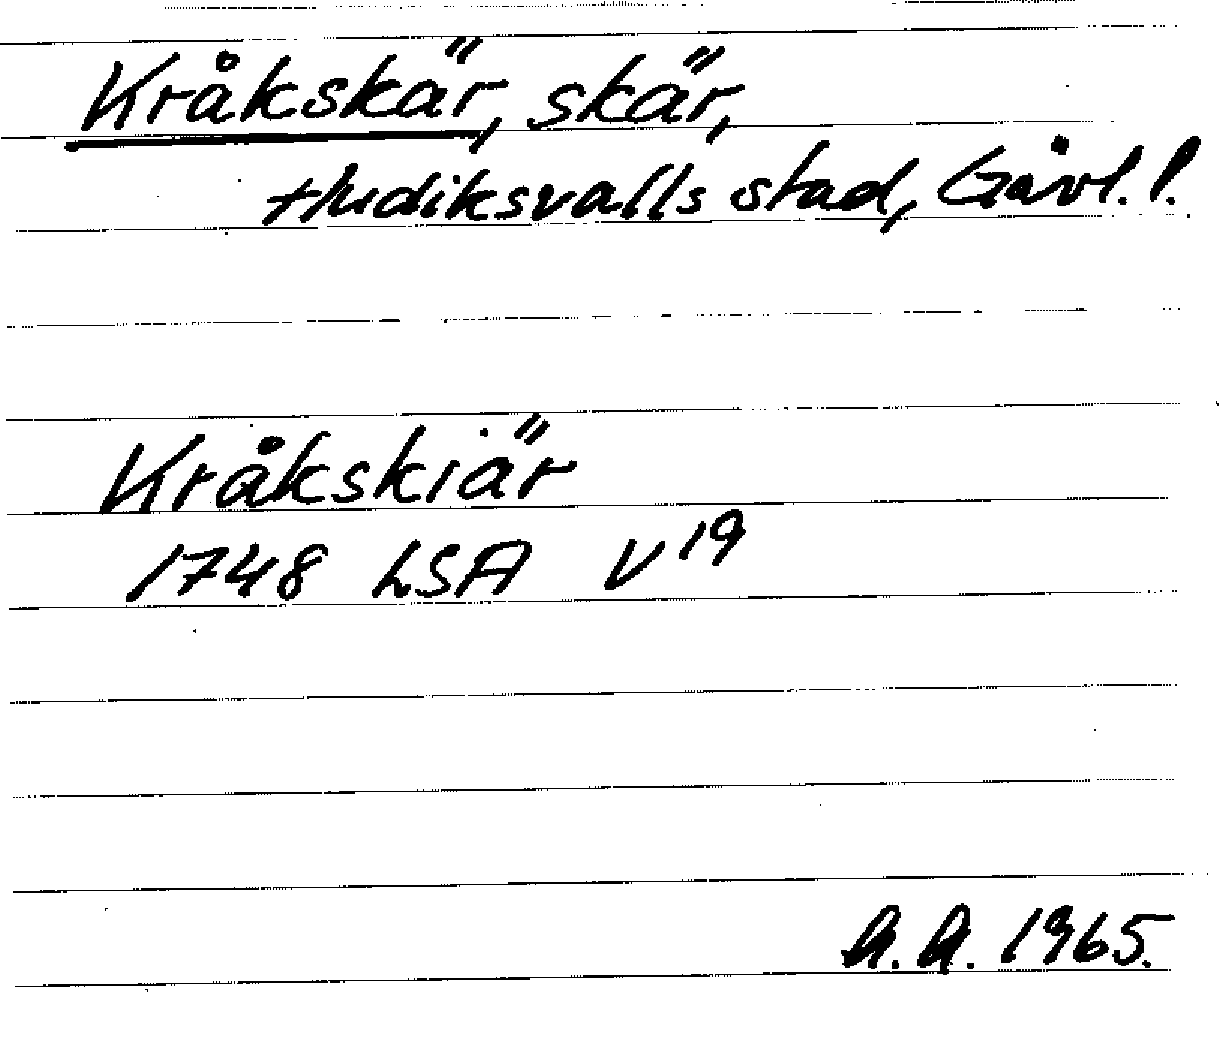 Kråkskär, skär,
Hudiksvalls stad, Gävl. l.
Kråkskiär
1748 LSA V19
A.A. 1965.